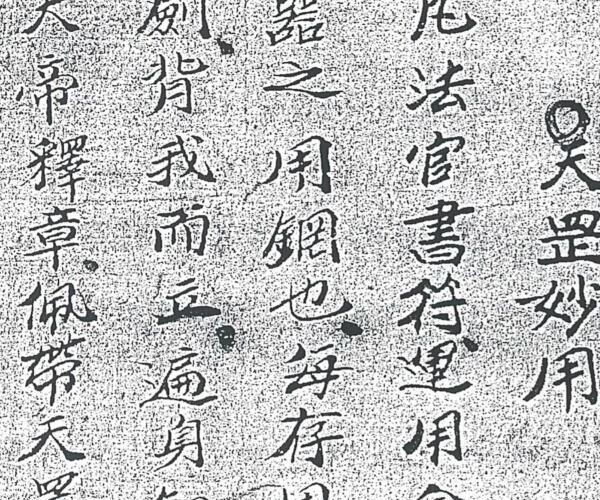 天罡妙用
凡法官書符運用
器之用鋼也每存
劍背我而立遍身
天帝釋章佩帶天罡